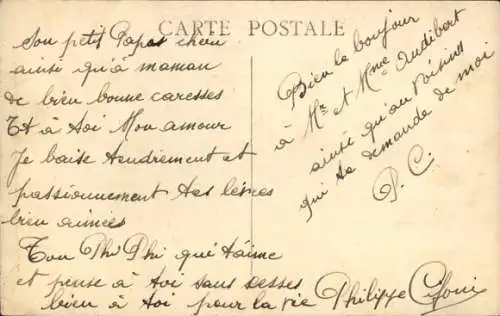 CARTE POSTALE
son petit Papas cheru
ainsi qu'à maman
de bien bonne caresses
Et à toi Mon amour
Je baise tendrement et
passionnement tes lèvres
bien aimées
Ton Phi Phi qui t'aime
et pense à toi sans cesses
bien à toi pour la vie Philippe
Bien le bonjour
à Mr et Mme Audibert
ainsi qu'au voisins
qui te demande de moi
P. C.